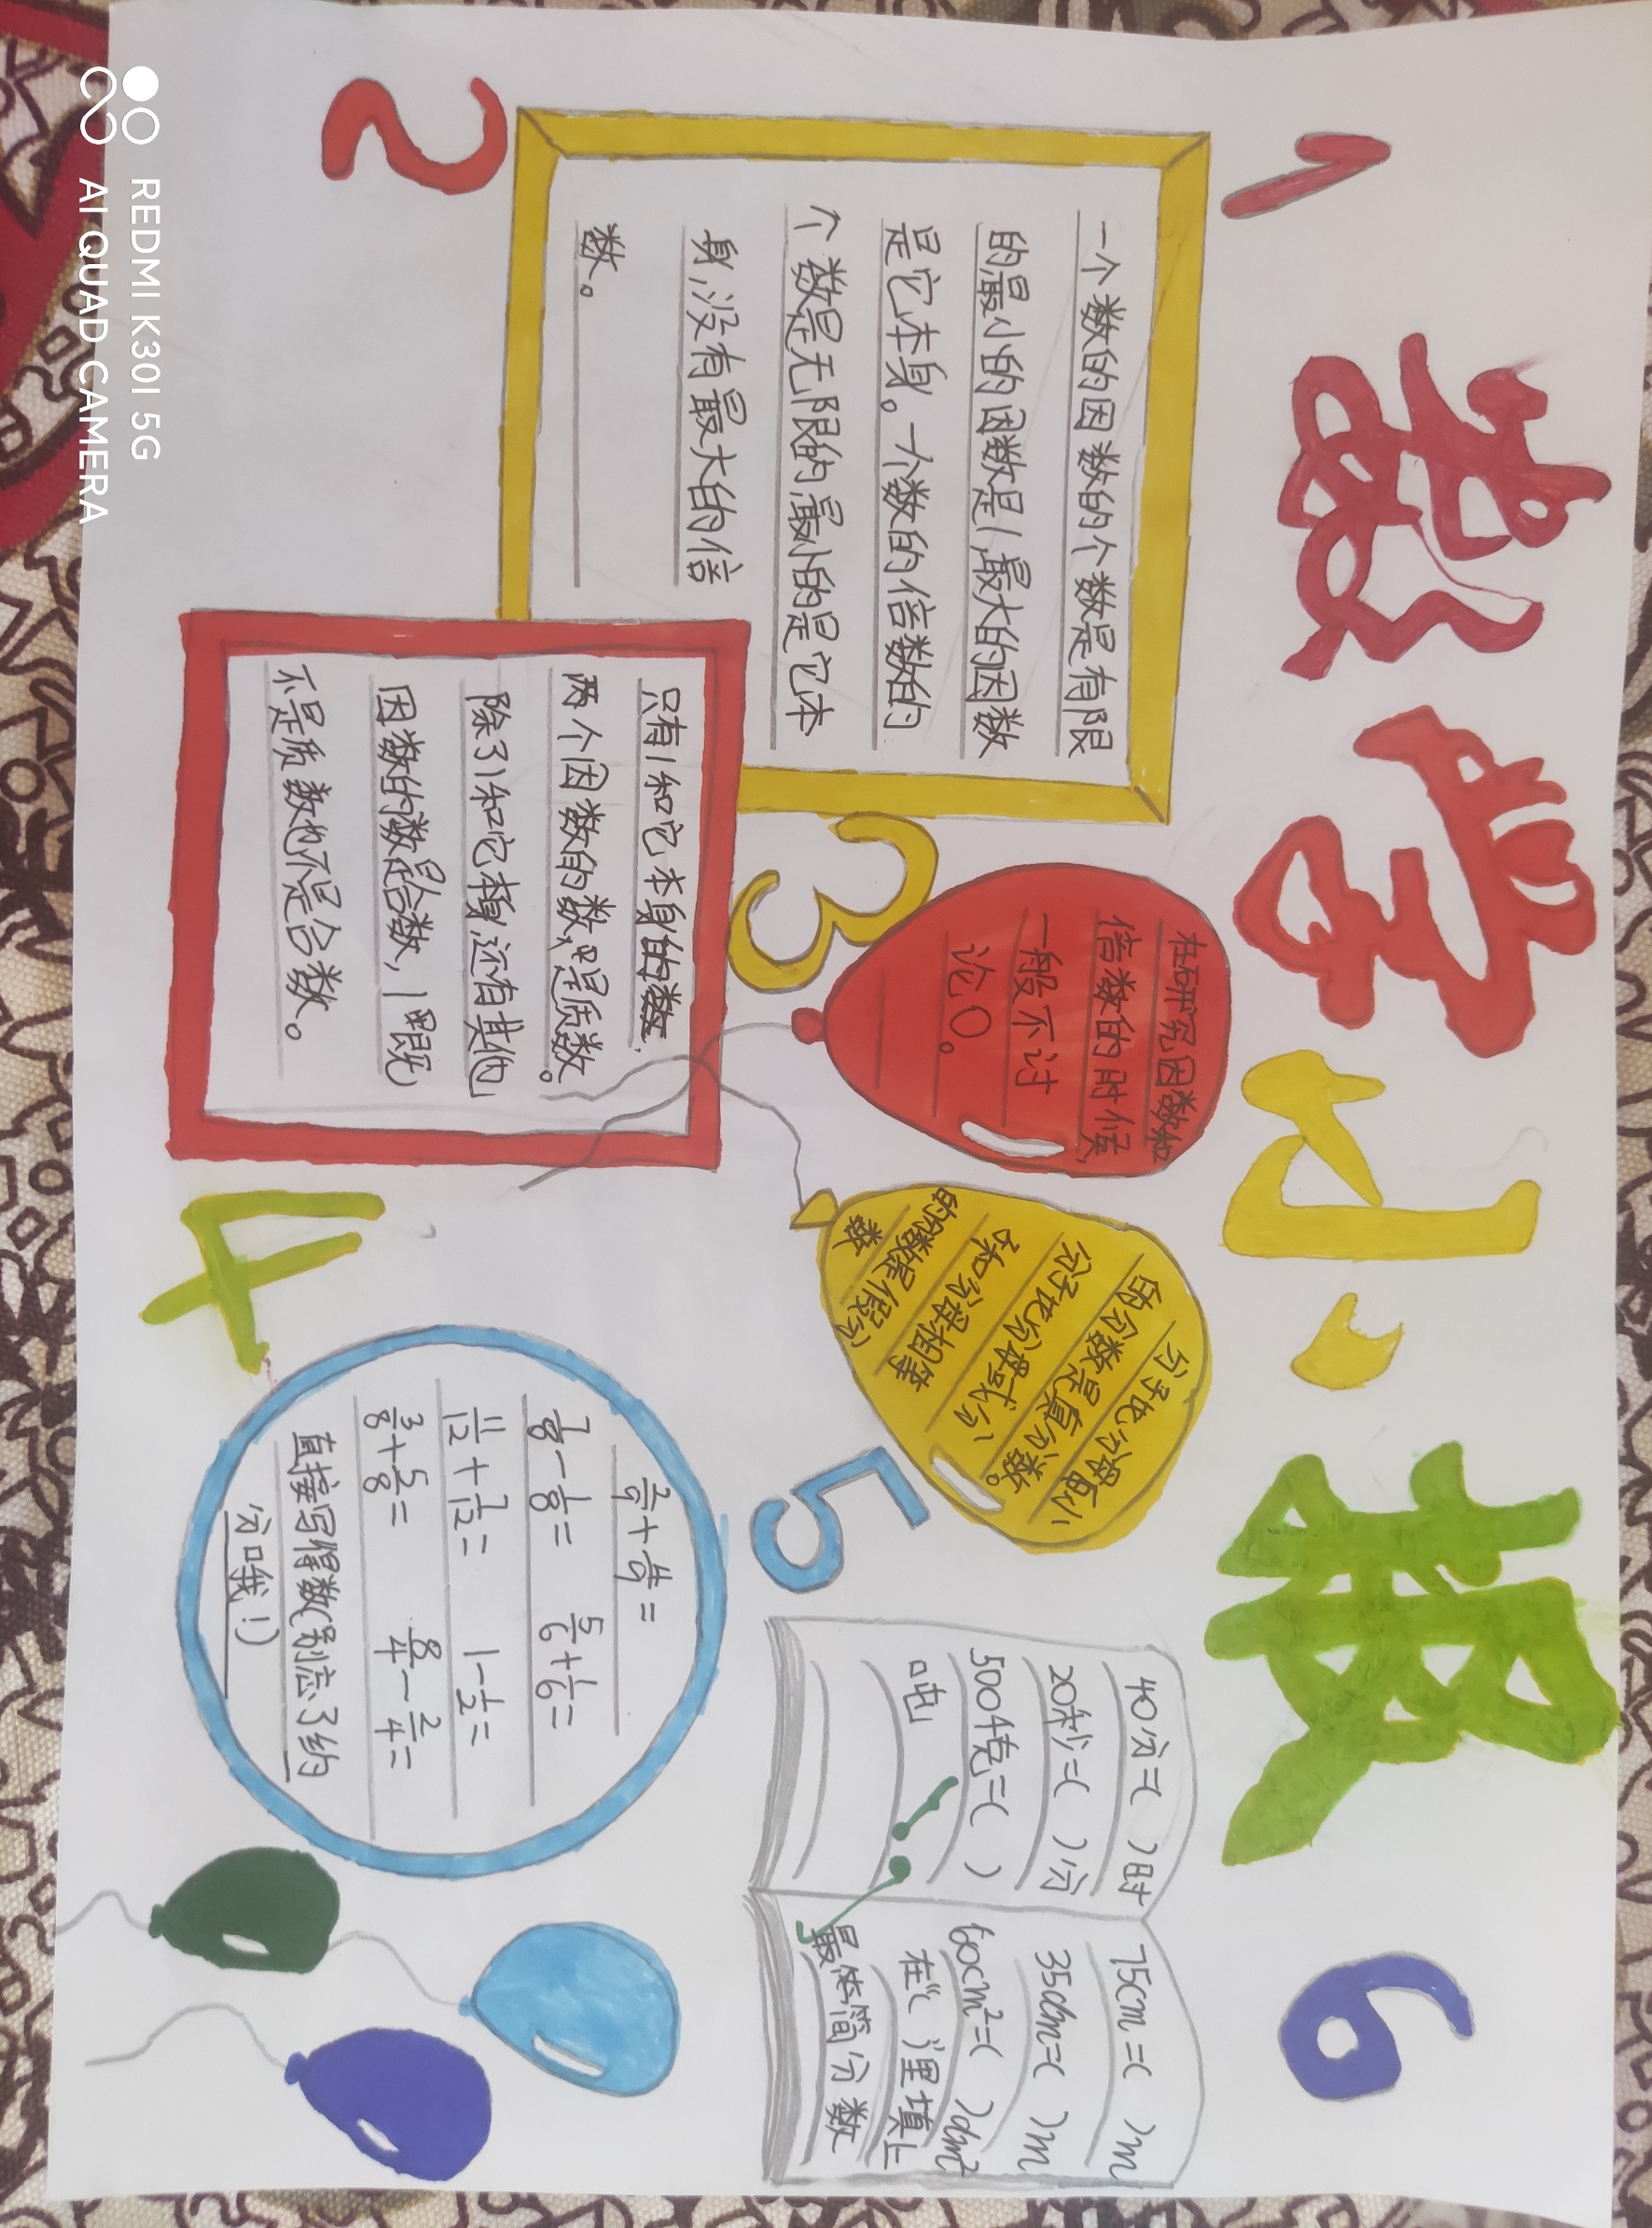 数学小报
1
2
3
4
5
6
一个数的因数的个数是有限
的最小的因数是1,最大的因数
是它本身。一个数的倍数的
个数是无限的,最小的是它本
身,没有最大的倍
数。
只有1和它本身的数,
两个因数的数,是质数。
除了1和它本身,还有其他
因数的数是合数,1既
不是质数也不是合数。
在研究因数和
倍数的时候,
一般不讨
论0。
分子比分母小
的分数是真分数。
分子比分母大或分
子和分母相等
的分数是假分
数
7/8-1/8=
5/6+1/6=
11/12+1/12=
1-1/2=
3/8+5/8=
8/4-2/4=
直接写得数(别忘了约
分哦!)
40分=( )时
20秒=( )分
500千克=( )
吨
75cm=( )m
35dm=( )m
60cm²=( )dm²
在“( )里填上
最简分数
REDMI K30I 5G
AI QUAD CAMERA